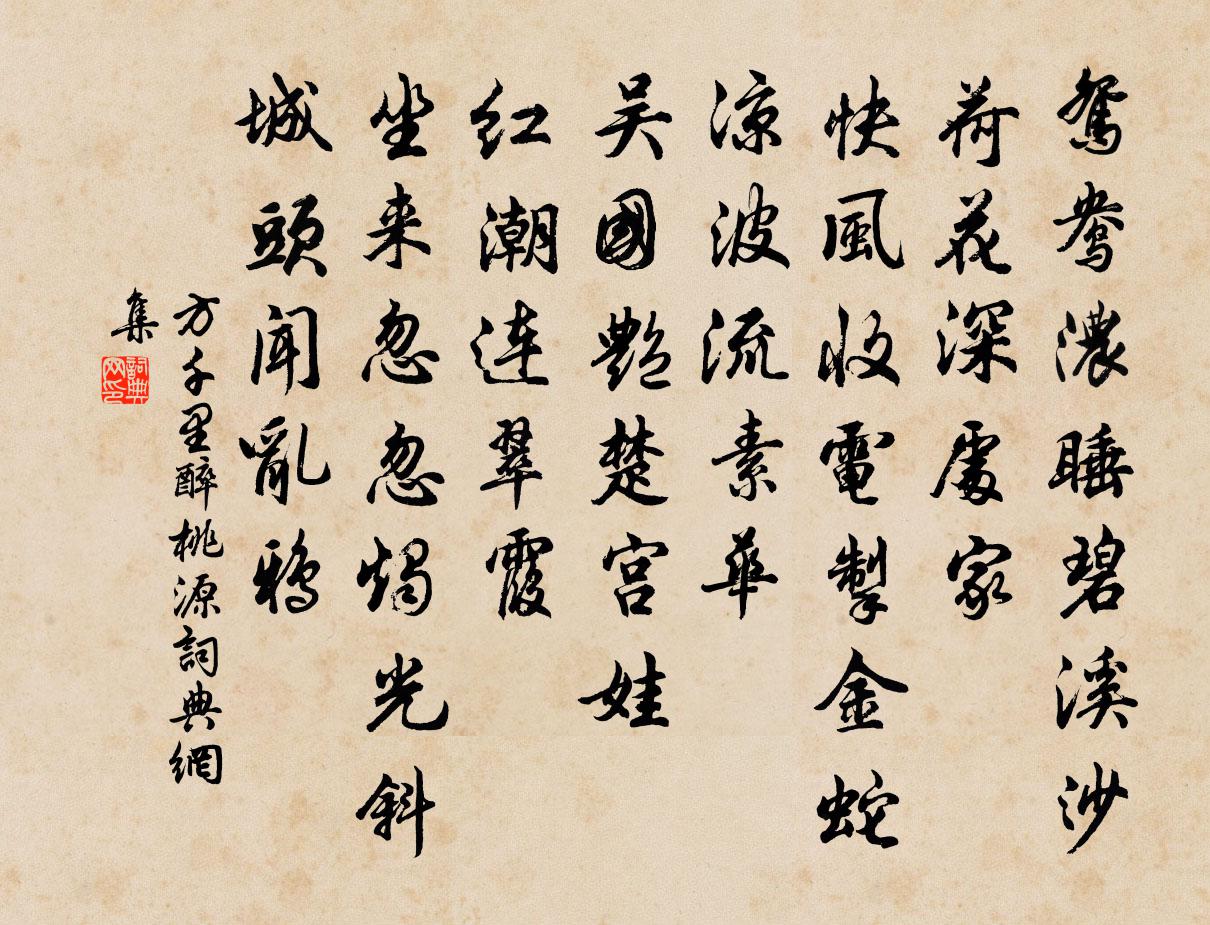 鴛鴦濃睡碧溪沙
荷花深處家
快風收電掣金蛇
涼波流素華
吴國艷楚宫娃
红潮連翠霞
坐来忽忽燭光斜
城頭聞亂鴉
方千里醉桃源詞典網
集
詞典
网印